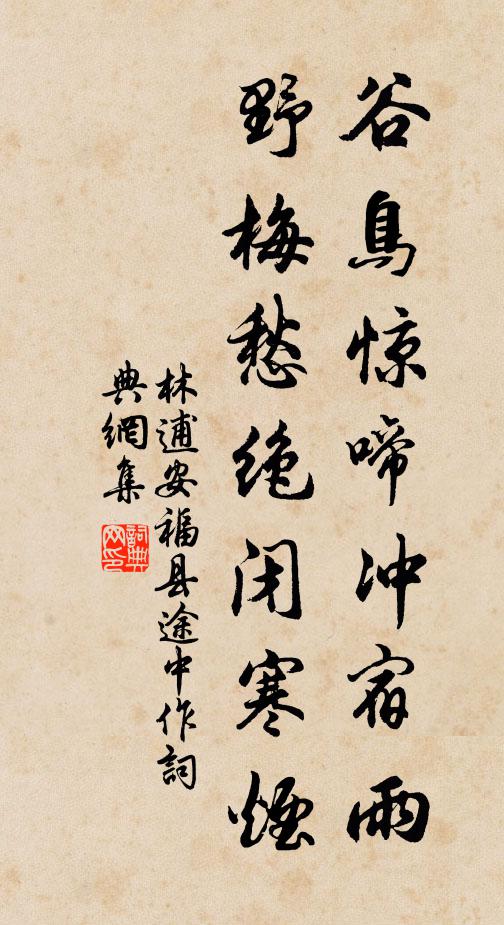 谷鳥惊啼冲宿雨
野梅愁绝闭寒煙
林逋安福县途中作詞
典網集
詞典
网印